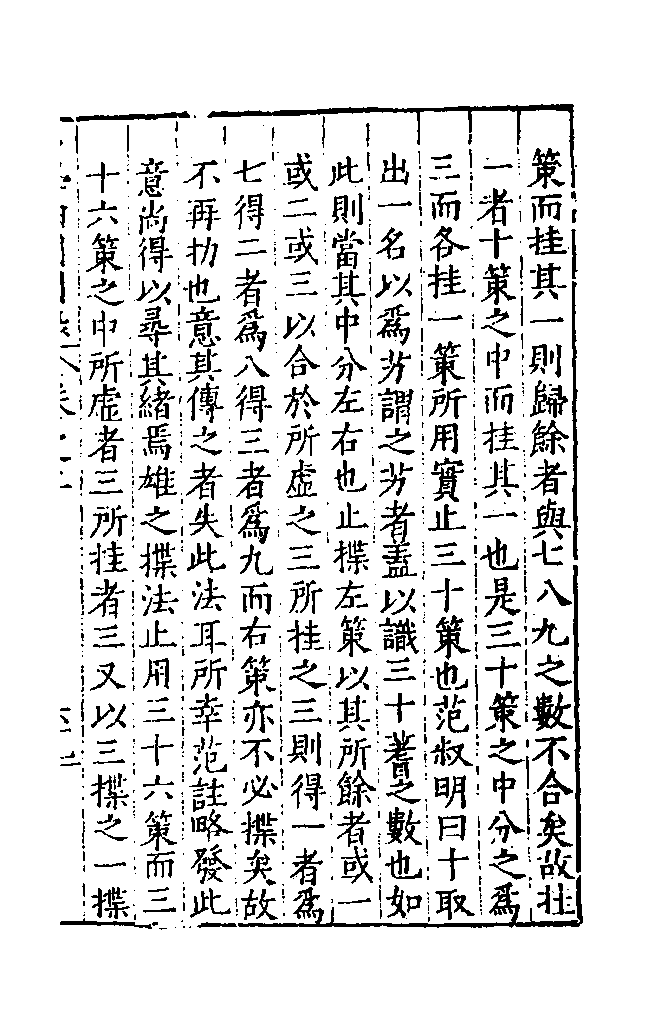 策而挂其一則歸餘者與七八九之數不合矣故挂
一者十策之中而挂其一也是三十策之中分之爲
三而各挂一策所用實止三十策也范叔明曰十取
出一名以爲芳謂之芳者蓋以識三十蓍之數也如
此則當其中分左右也止揲左策以其所餘者或一
或二或三以合於所虛之三所挂之三則得一者爲
七得二者爲八得三者爲九而右策亦不必揲矣故
不再扐也意其傳之者失此法耳所幸范註略發此
意尚得以尋其緒焉雄之揲法止用三十六策而三
十六策之中所虛者三所挂者三又以三揲之一揲